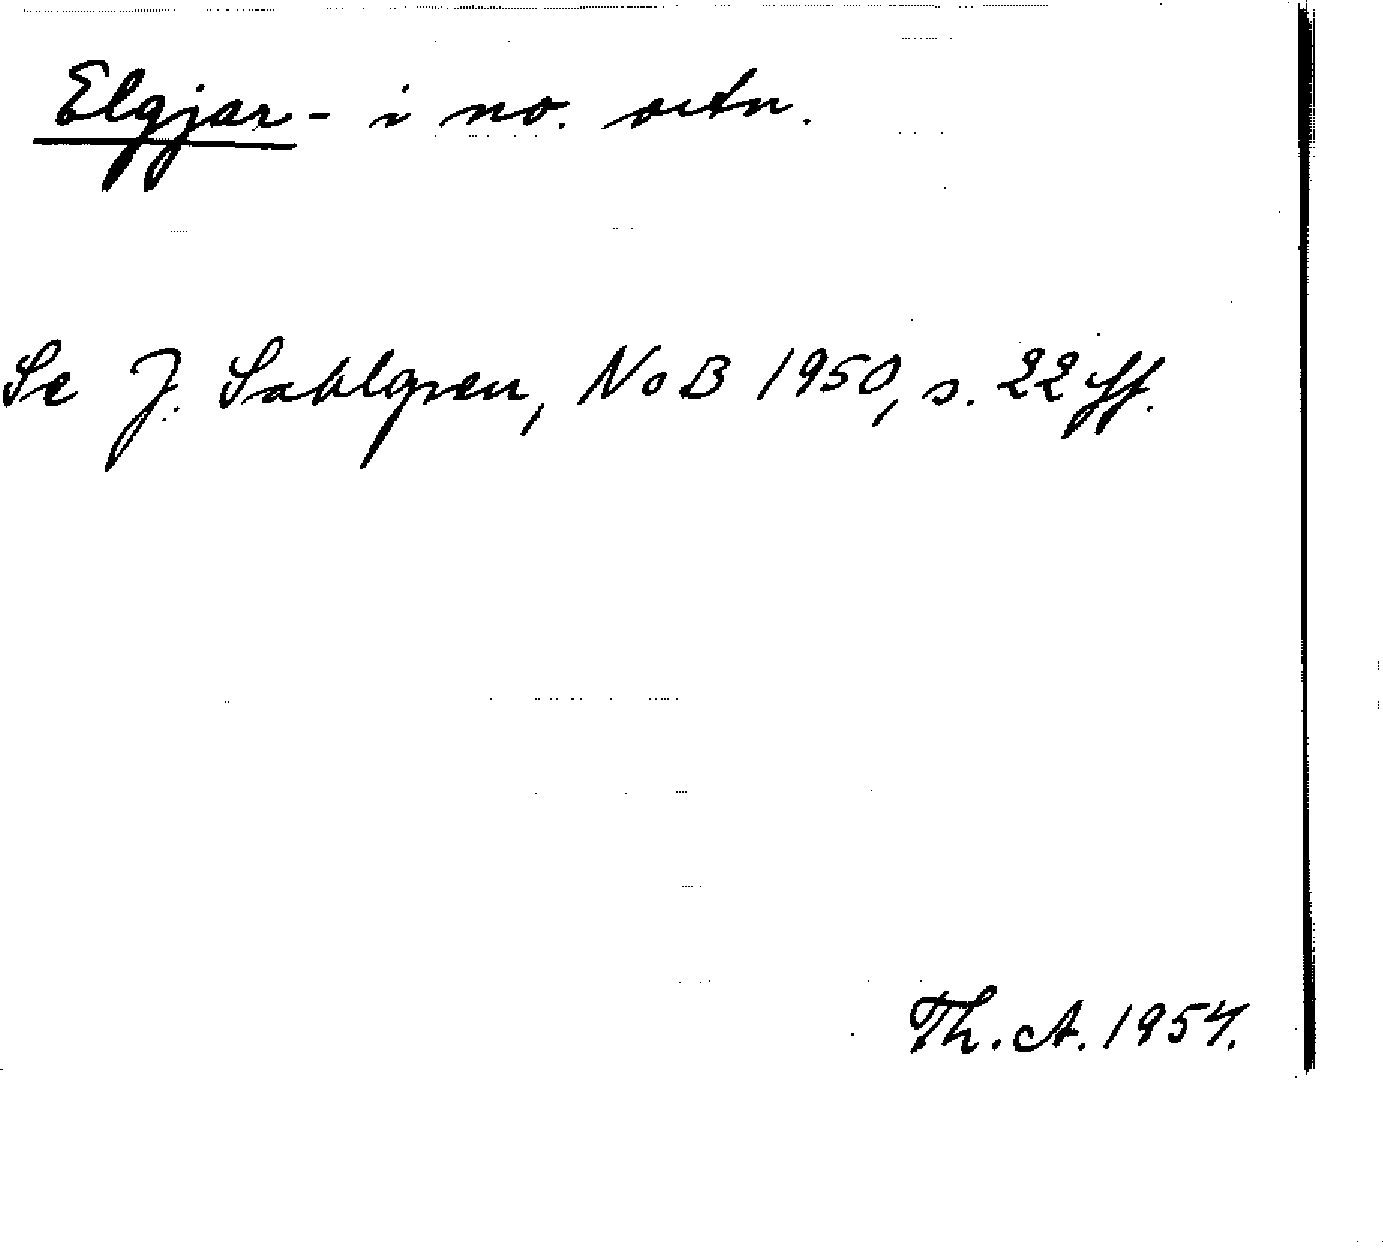 Elgjar- i no. ortn.
Se J. Sahlgren, NoB 1950, s. 22 ff.
Th. A. 1954.